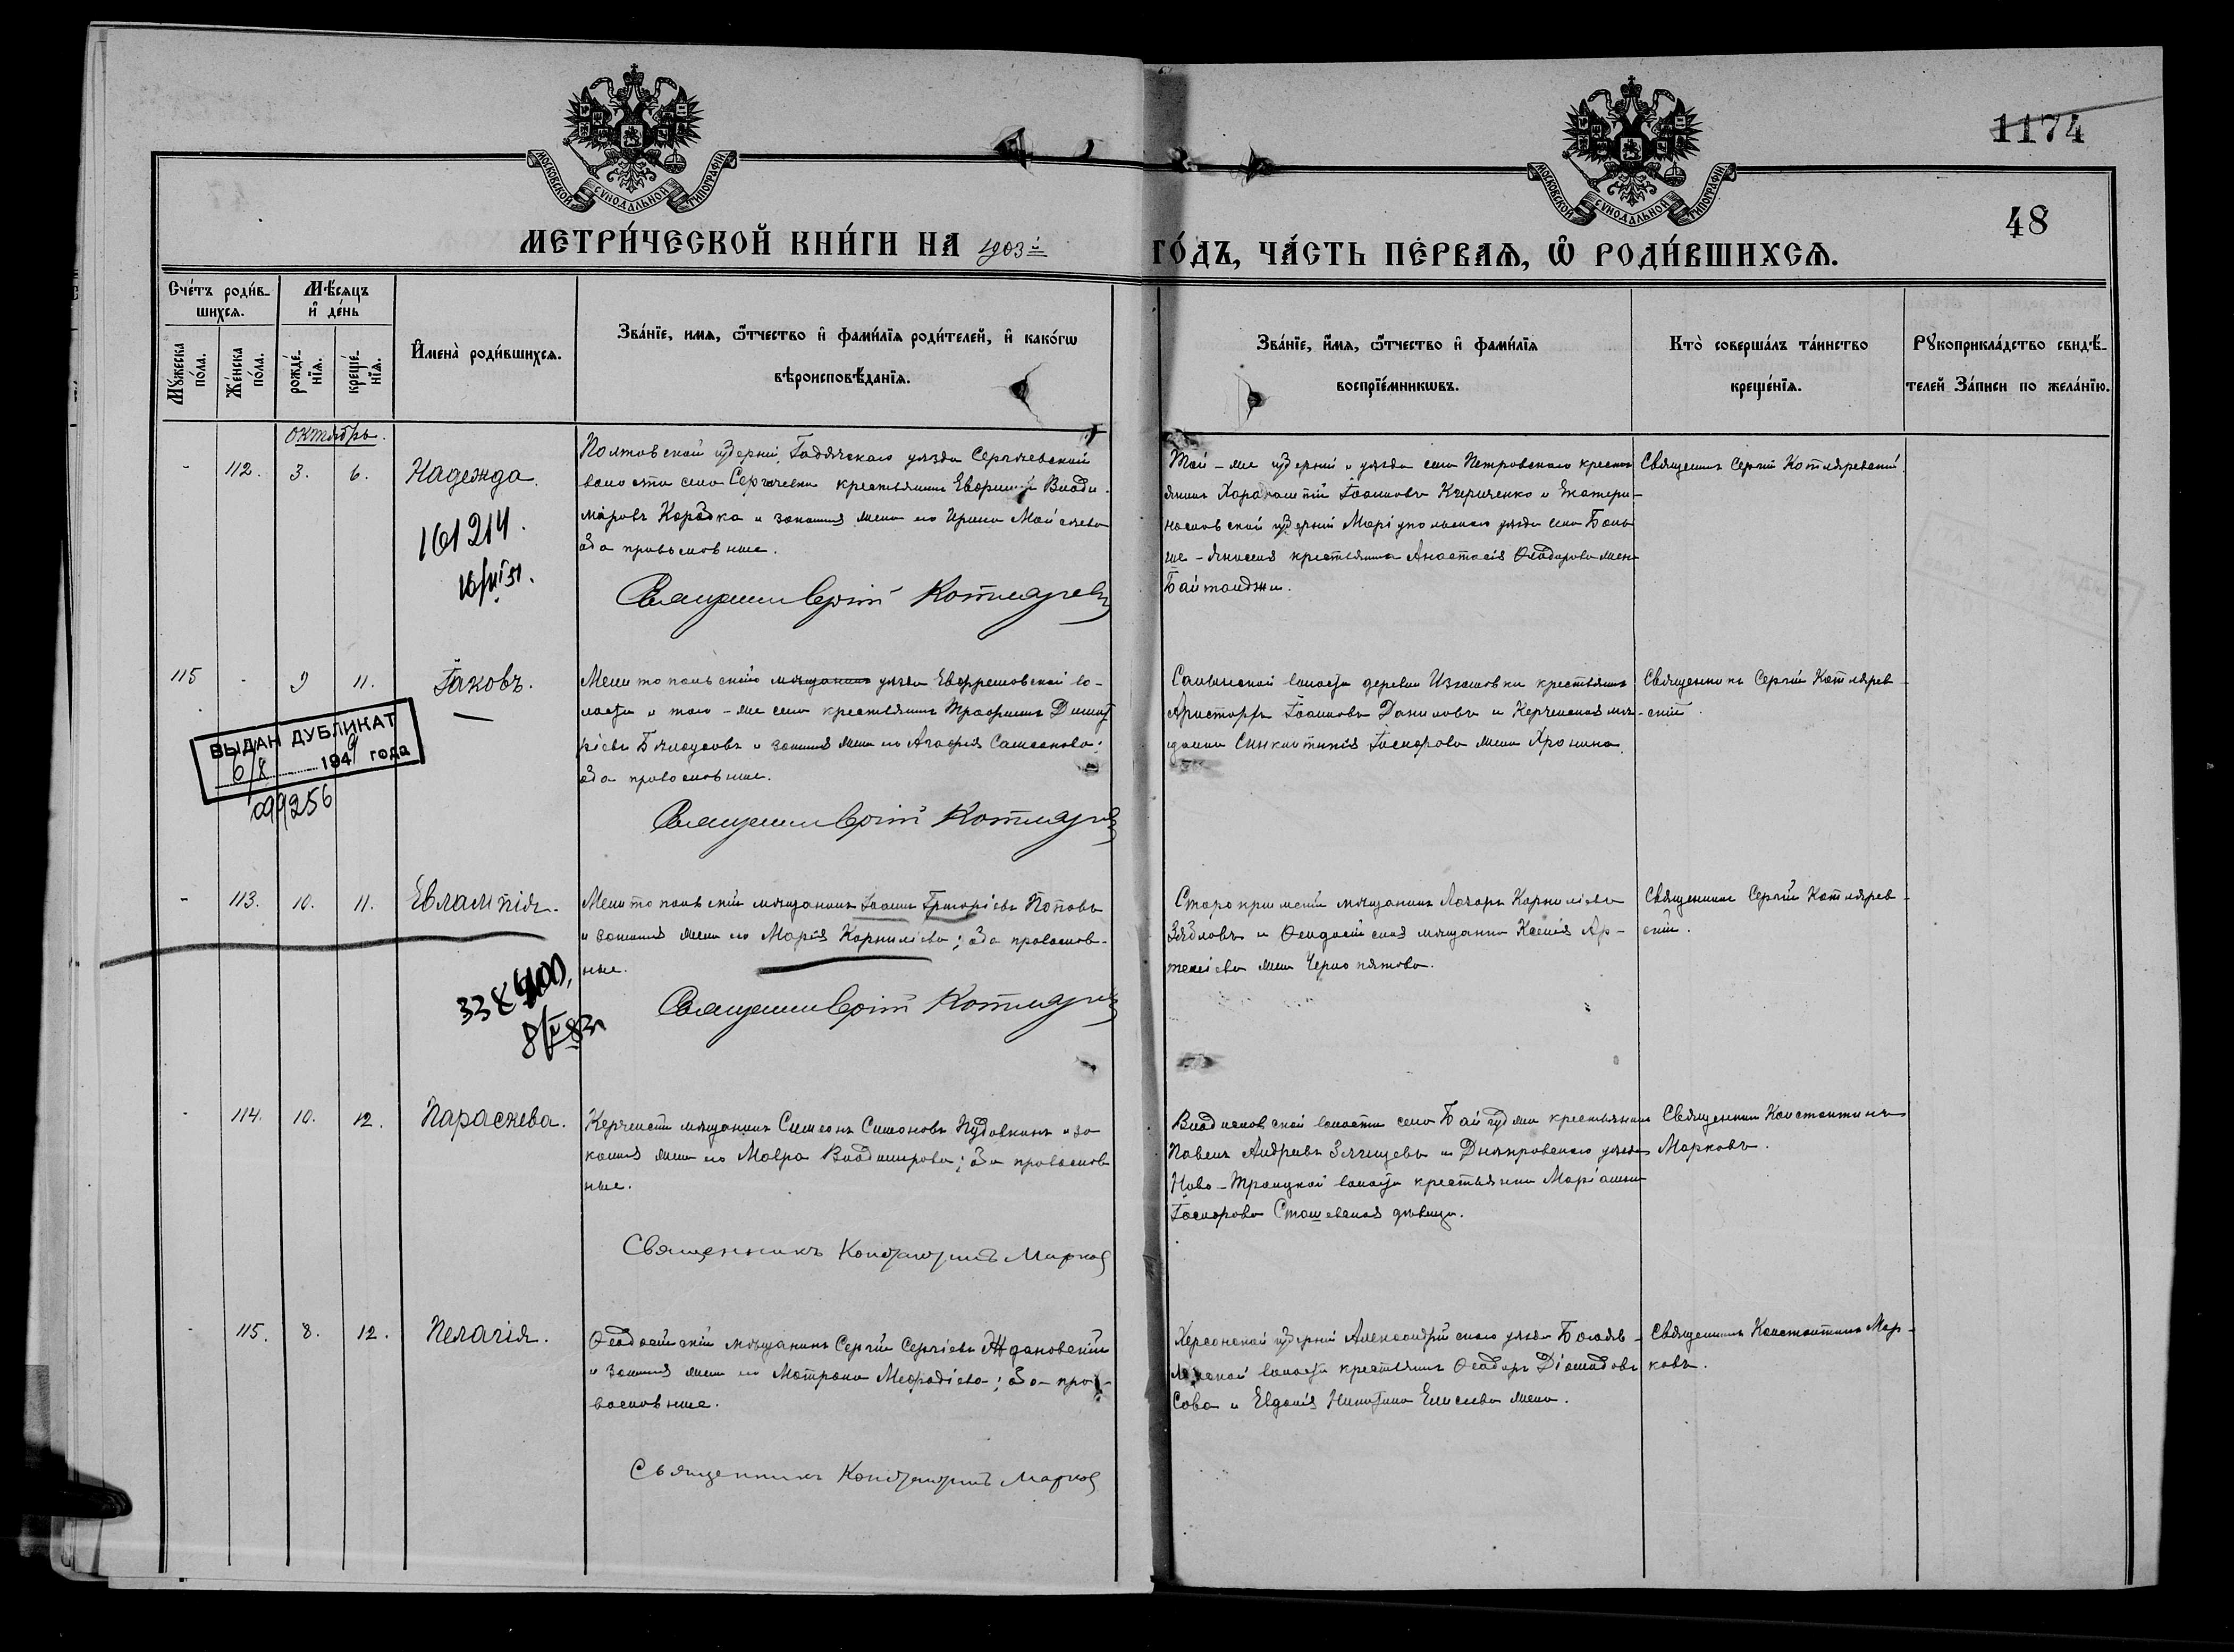 1174
48
МОСКОВСКОЙ СУНОДАЛЬНОЙ ТИПОГРАФІИ
МОСКОВСКОЙ СУНОДАЛЬНОЙ ТИПОГРАФІИ
МЕТРИ́ЧЕСКОЙ КНИ́ГИ НА 1903й ГО́ДЪ, ЧА́СТЬ ПЕ́РВАѦ, Ѡ РОДИ́ВШИХСѦ.
Счéтъ роди́в-
шихсѧ.
Му́жеска по́ла.
Же́нска по́ла.
Мѣ́сяцъ
и҆ де́нь
рожде́-
нїѧ.
креще́-
нїѧ.
И҆менà роди́вшихсѧ.
Зва́нїе, имѧ, ѻ҆́тчество и҆ фами́лїѧ роди́телей, и҆ како́гѡ
вѣроисповѣ́данїѧ.
Зва́нїе, и҆́мѧ, ѻ҆́тчество и҆ фами́лїѧ
воспрїе́мникѡвъ.
Ктò соверша́лъ та́инство
креще́нїѧ.
Рꙋкоприкла́дство свидѣ́-
телей За́писи по жела́нїю.
Октябрь.
- 112. 3. 6. Надежда.
Полтавской губерніи, Гадячскаго уѣзда Сергіевской
волости села Сергіевки крестьянинъ Влади-
міровъ и законная жена его Ирина Моисеева
оба православные.
Священникъ Сергій Котляревскій
161214.
16/VI 51.
Той-же губерніи и уѣзда села Петровскаго кресть-
янинъ Харалампій Іоанновъ Кириченко и Екатери-
нославской губерніи Маріупольскаго уѣзда села Боль-
ше-Янисоля крестьянка Анастасія Ѳеодорова жена
Священникъ Сергій Котляревскій.
115 - 9 11. Іаковъ.
Мелитопольскаго мѣщанинъ уѣзда во-
лости и того-же села крестьянинъ Трофимъ Димит-
ріевъ Бѣлоусовъ и законная жена его Агафія Самсонова;
оба православные.
Священникъ Сергій Котляревскій
ВЫДАН ДУБЛИКАТ
6/X 1949 года
099256
волости деревни крестьянинъ
Іоанновъ Даниловъ и Керченская мѣ-
щанка Синклитикія жена
Священникъ Сергій Котлярев-
скій.
- 113. 10. 11. Евлампія.
Мелитопольскій мѣщанинъ Іоаннъ Григоріевъ Поповъ
и законная жена его Марія Корниліева; оба православ-
ные.
Священникъ Сергій Котляревскій
Старокрымскій мѣщанинъ Лазарь Корниліевъ
Зябловъ и Ѳеодосійская мѣщанка Ксенія Ар-
теміева жена Чернопятова.
Священникъ Сергій Котлярев-
скій.
- 114. 10. 12. Параскева.
Керченскій мѣщанинъ Симеонъ Симоновъ Пудовкинъ и за-
конная жена его Мавра Владимірова; оба православ-
ные.
Священникъ Константинъ Марковъ
Владиславской волости села крестьянинъ
Павелъ Андреевъ и Днѣпровскаго уѣзда
Ново-Троицкой волости крестьянка
Сташевская дѣвица.
Священникъ Константинъ
Марковъ.
- 115. 8. 12. Пелагія.
Ѳеодосійскій мѣщанинъ Сергій Сергіевъ Ждановскій
и законная жена его Матрона Меѳодіева; оба пра-
вославные.
Священникъ Константинъ Марковъ
Херсонской губерніи Александрійскаго уѣзда
волости крестьянинъ Ѳеодоръ Діомидовъ
Сова и Евдокія Никитина Елисеева жена.
Священникъ Константинъ Мар-
ковъ.